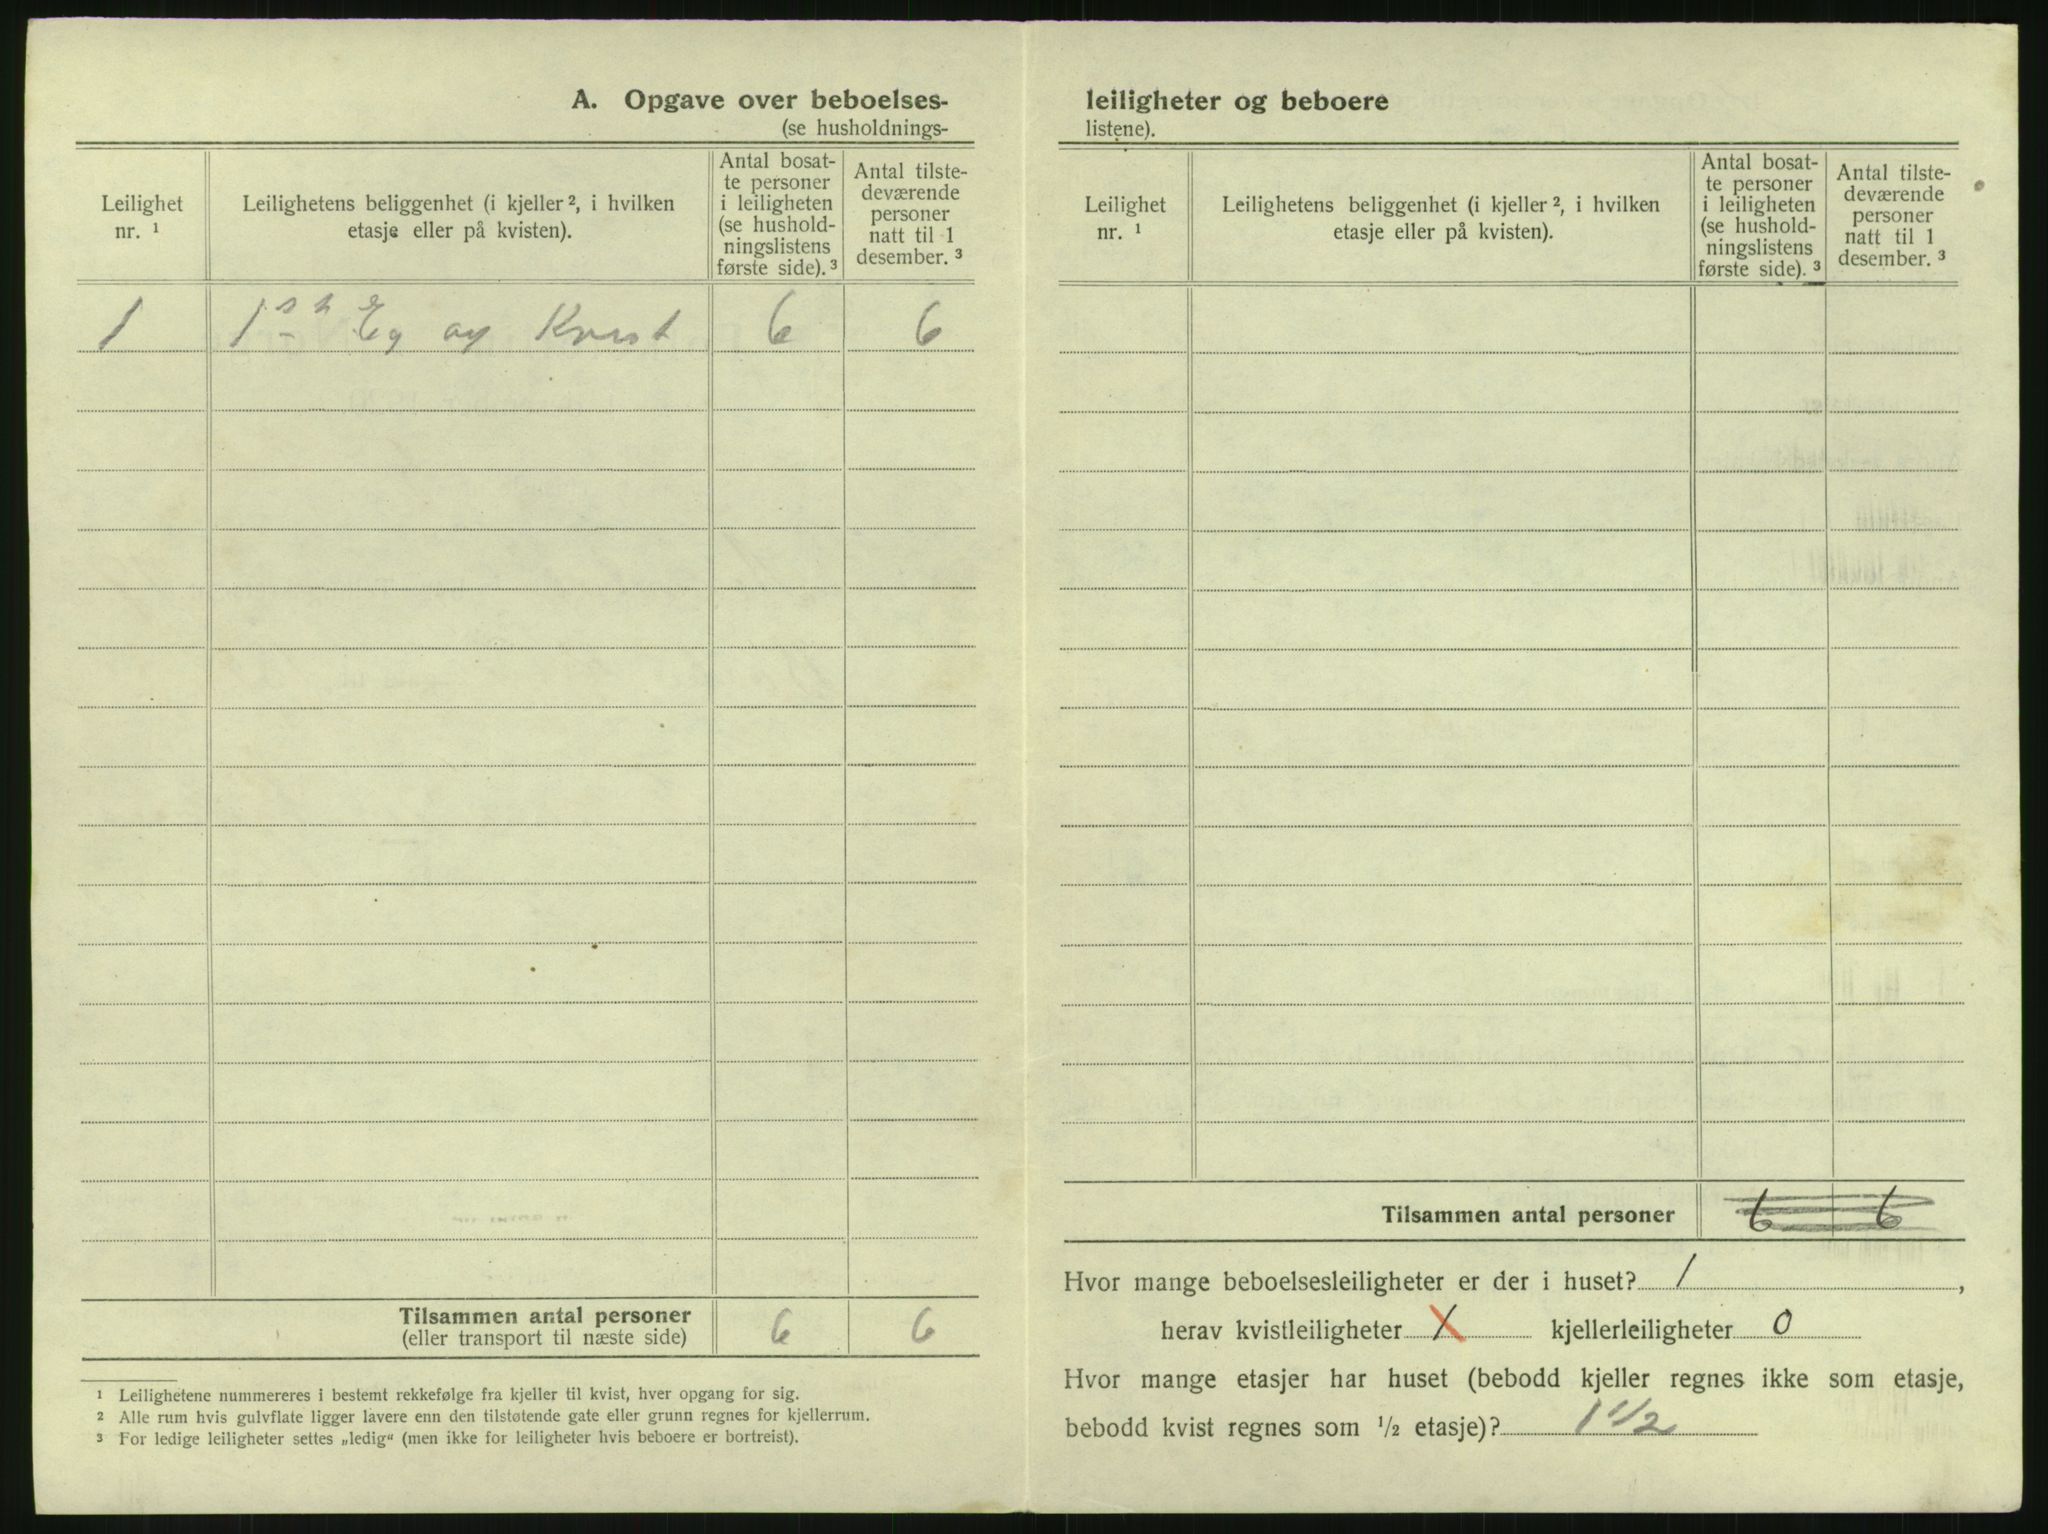 A. Opgave over beboelses-
(se husholdnings-
Leilighet
nr. ¹
Leilighetens beliggenhet (i kjeller ², i hvilken
etasje eller på kvisten).
Antal bosat-
te personer
i leiligheten
(se hushold-
ningslistens
første side). ³
Antal tilste-
deværende
personer
natt til 1
desember. ³
1 Kvist 6 6
Tilsammen antal personer 6 6
(eller transport til næste side)
¹ Leilighetene nummereres i bestemt rekkefølge fra kjeller til kvist, hver opgang for sig.
² Alle rum hvis gulvflate ligger lavere enn den tilstøtende gate eller grunn regnes for kjellerrum.
³ For ledige leiligheter settes „ledig“ (men ikke for leiligheter hvis beboere er bortreist).
leiligheter og beboere
listene).
Leilighet
nr. ¹
Leilighetens beliggenhet (i kjeller ², i hvilken
etasje eller på kvisten).
Antal bosat-
te personer
i leiligheten
(se hushold-
ningslistens
første side). ³
Antal tilste-
deværende
personer
natt til 1
desember. ³
Tilsammen antal personer 6 6
Hvor mange beboelsesleiligheter er der i huset? 1,
herav kvistleiligheter X kjellerleiligheter 0
Hvor mange etasjer har huset (bebodd kjeller regnes ikke som etasje,
bebodd kvist regnes som ½ etasje)? 1 1/2